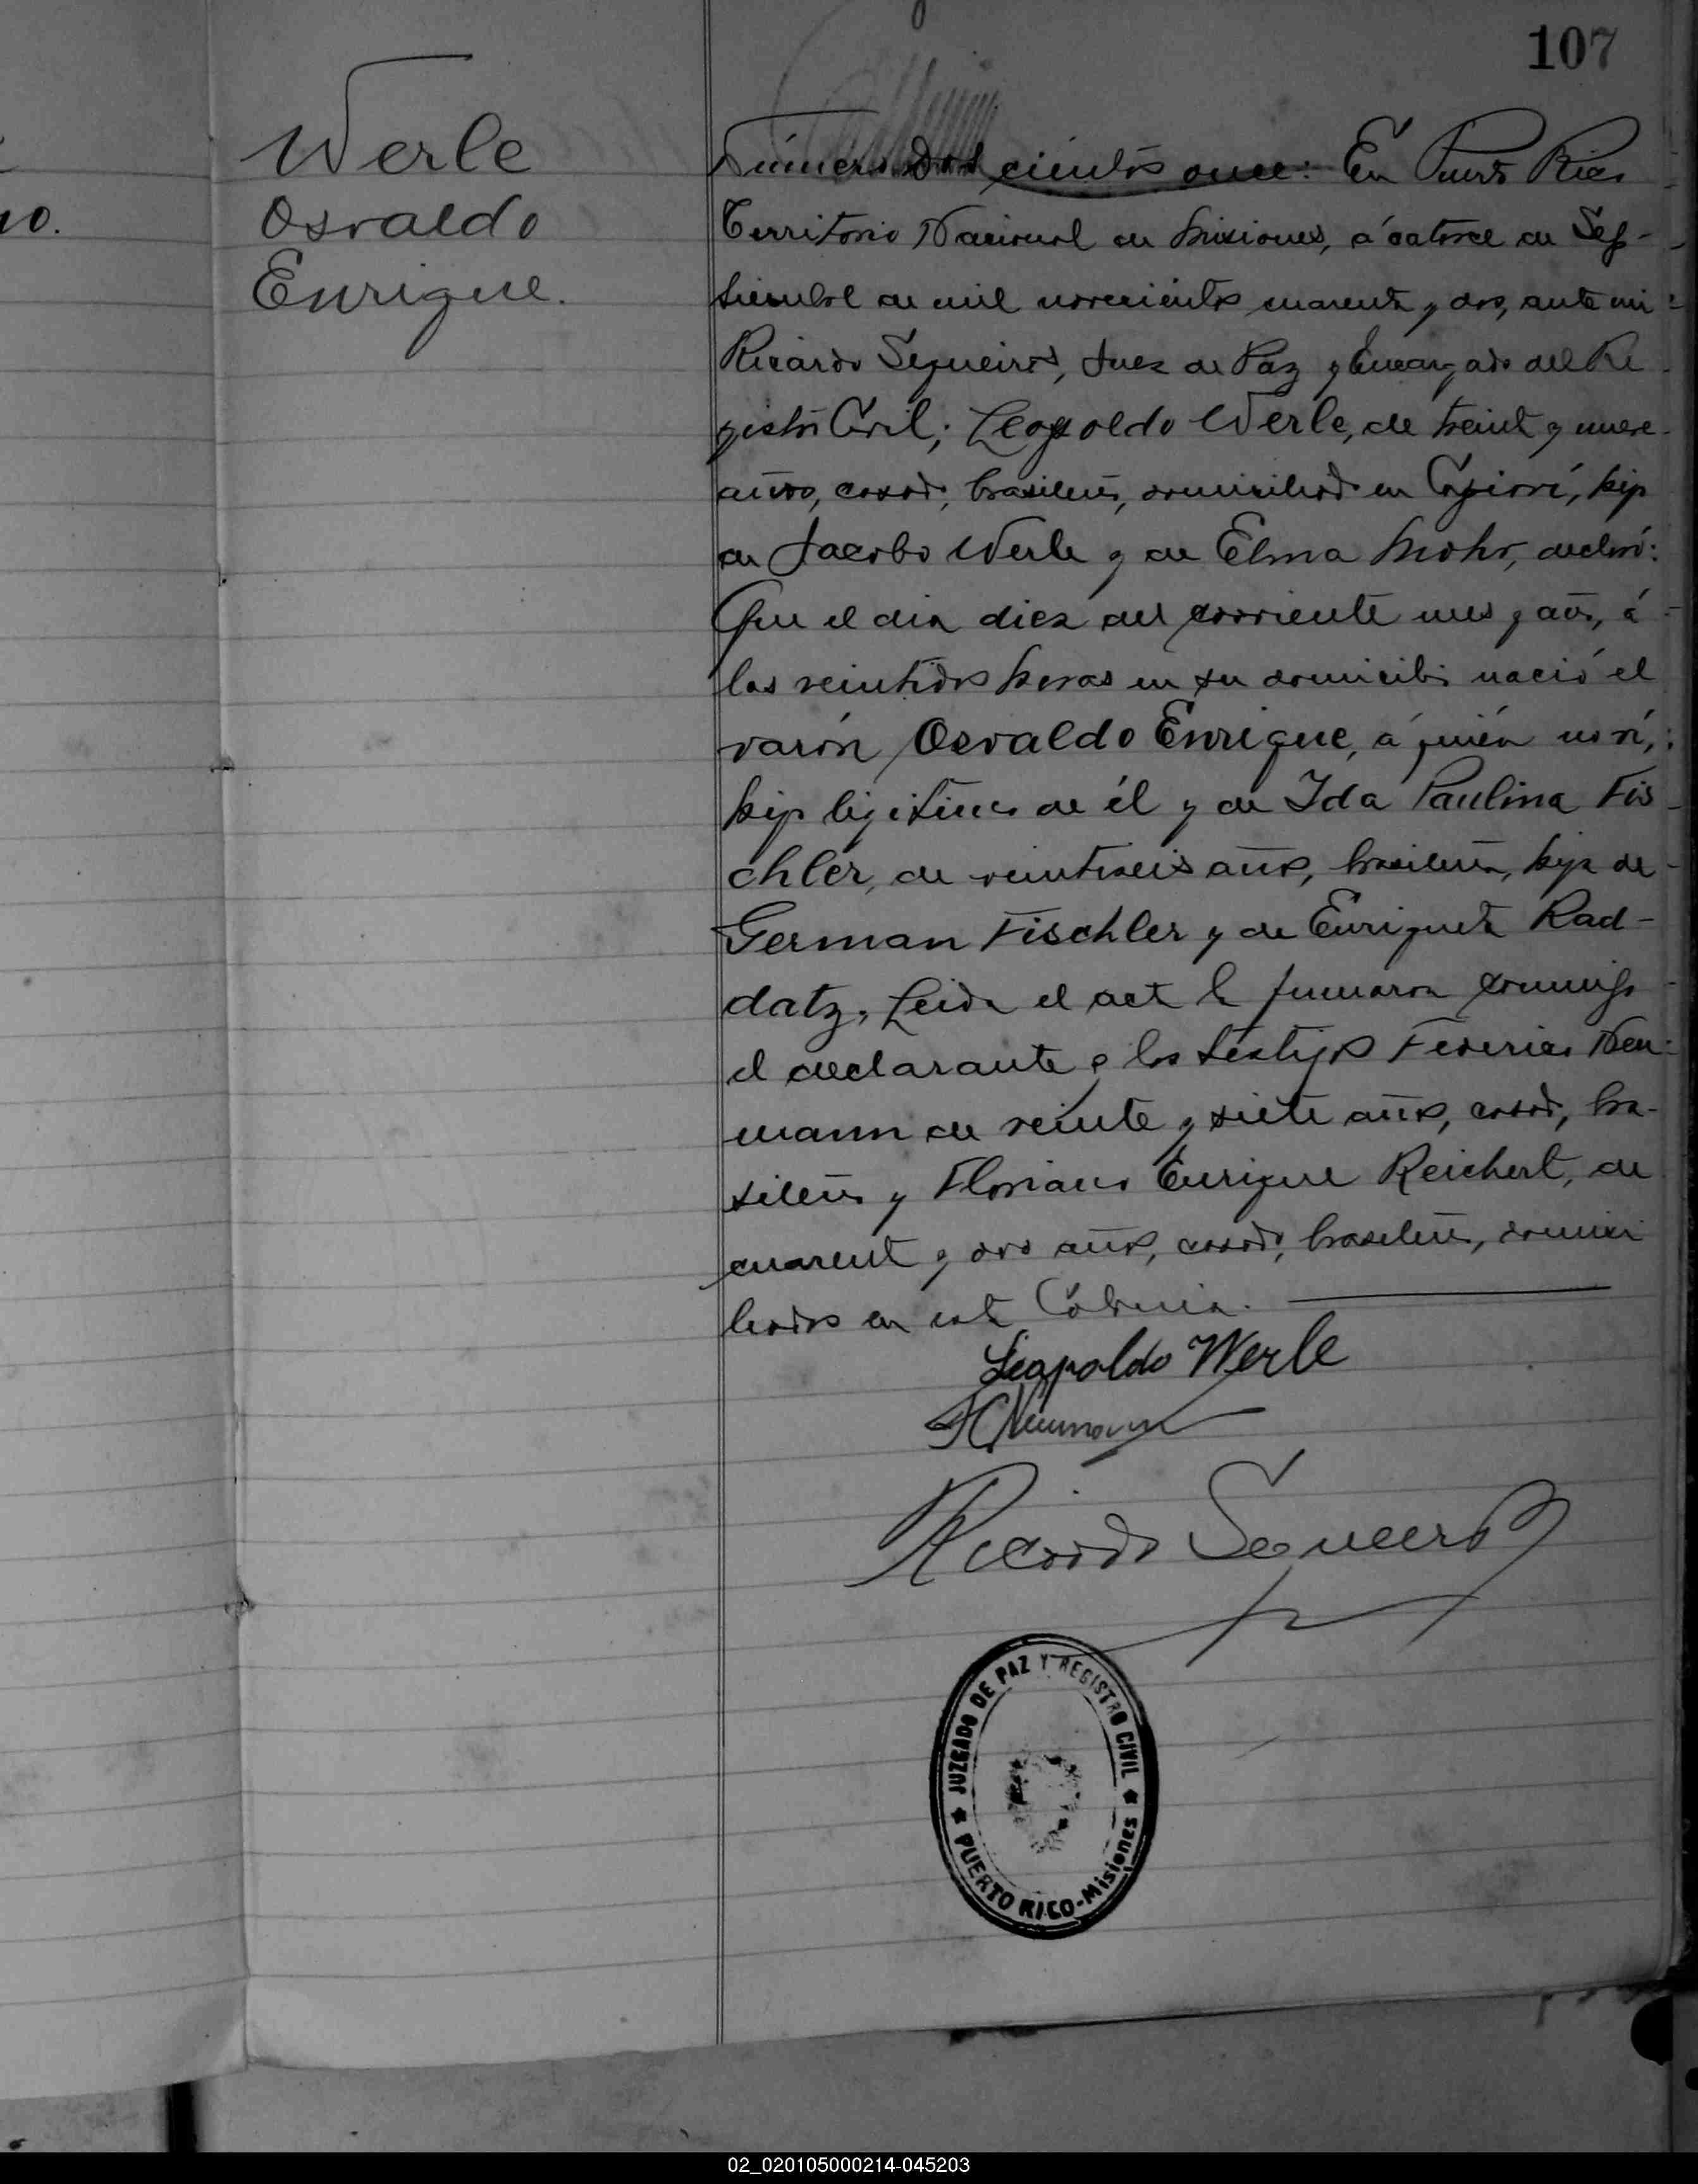 107
Werle
Osvaldo
Enrique.
no.
Número doscientos once: En Puerto Rico
Territorio Nacional de Misiones, á catorce de Sep-
tiembre de mil novecientos cuarenta y dos, ante mi
Ricardo Sequeiros, Juez de Paz y Encargado del Re
gistro Civil; Leopoldo Werle, de treinta y nueve
años, casado, brasileño, domiciliado en Capiovi, hijo
de Jacobo Werle y de Elma Mohr, declaró:
Que el dia diez del corriente mes y año, á
las veintidos horas en su domicilio nació el
varón Osvaldo Enrique, á quién no ví,
hijo legitimo de él y de Ida Paulina Fis
chler, de veintiseis años, brasileña, hija de
German Fischler y de Enriqueta Rad-
datz. Leida el acta la firmaron conmigo
el declarante y los testigos Federico Neu-
mann de veinte y siete años, casado, bra-
sileño y Floriano Enrique Reichert, de
cuarenta y dos años, casado, brasileño, domici
liados en esta Colonia.
Leopoldo Werle
F Neumann
Ricardo Sequeiros
JUZGADO DE PAZ Y REGISTRO CIVIL
PUERTO RICO-Misiones
02_020105000214-045203